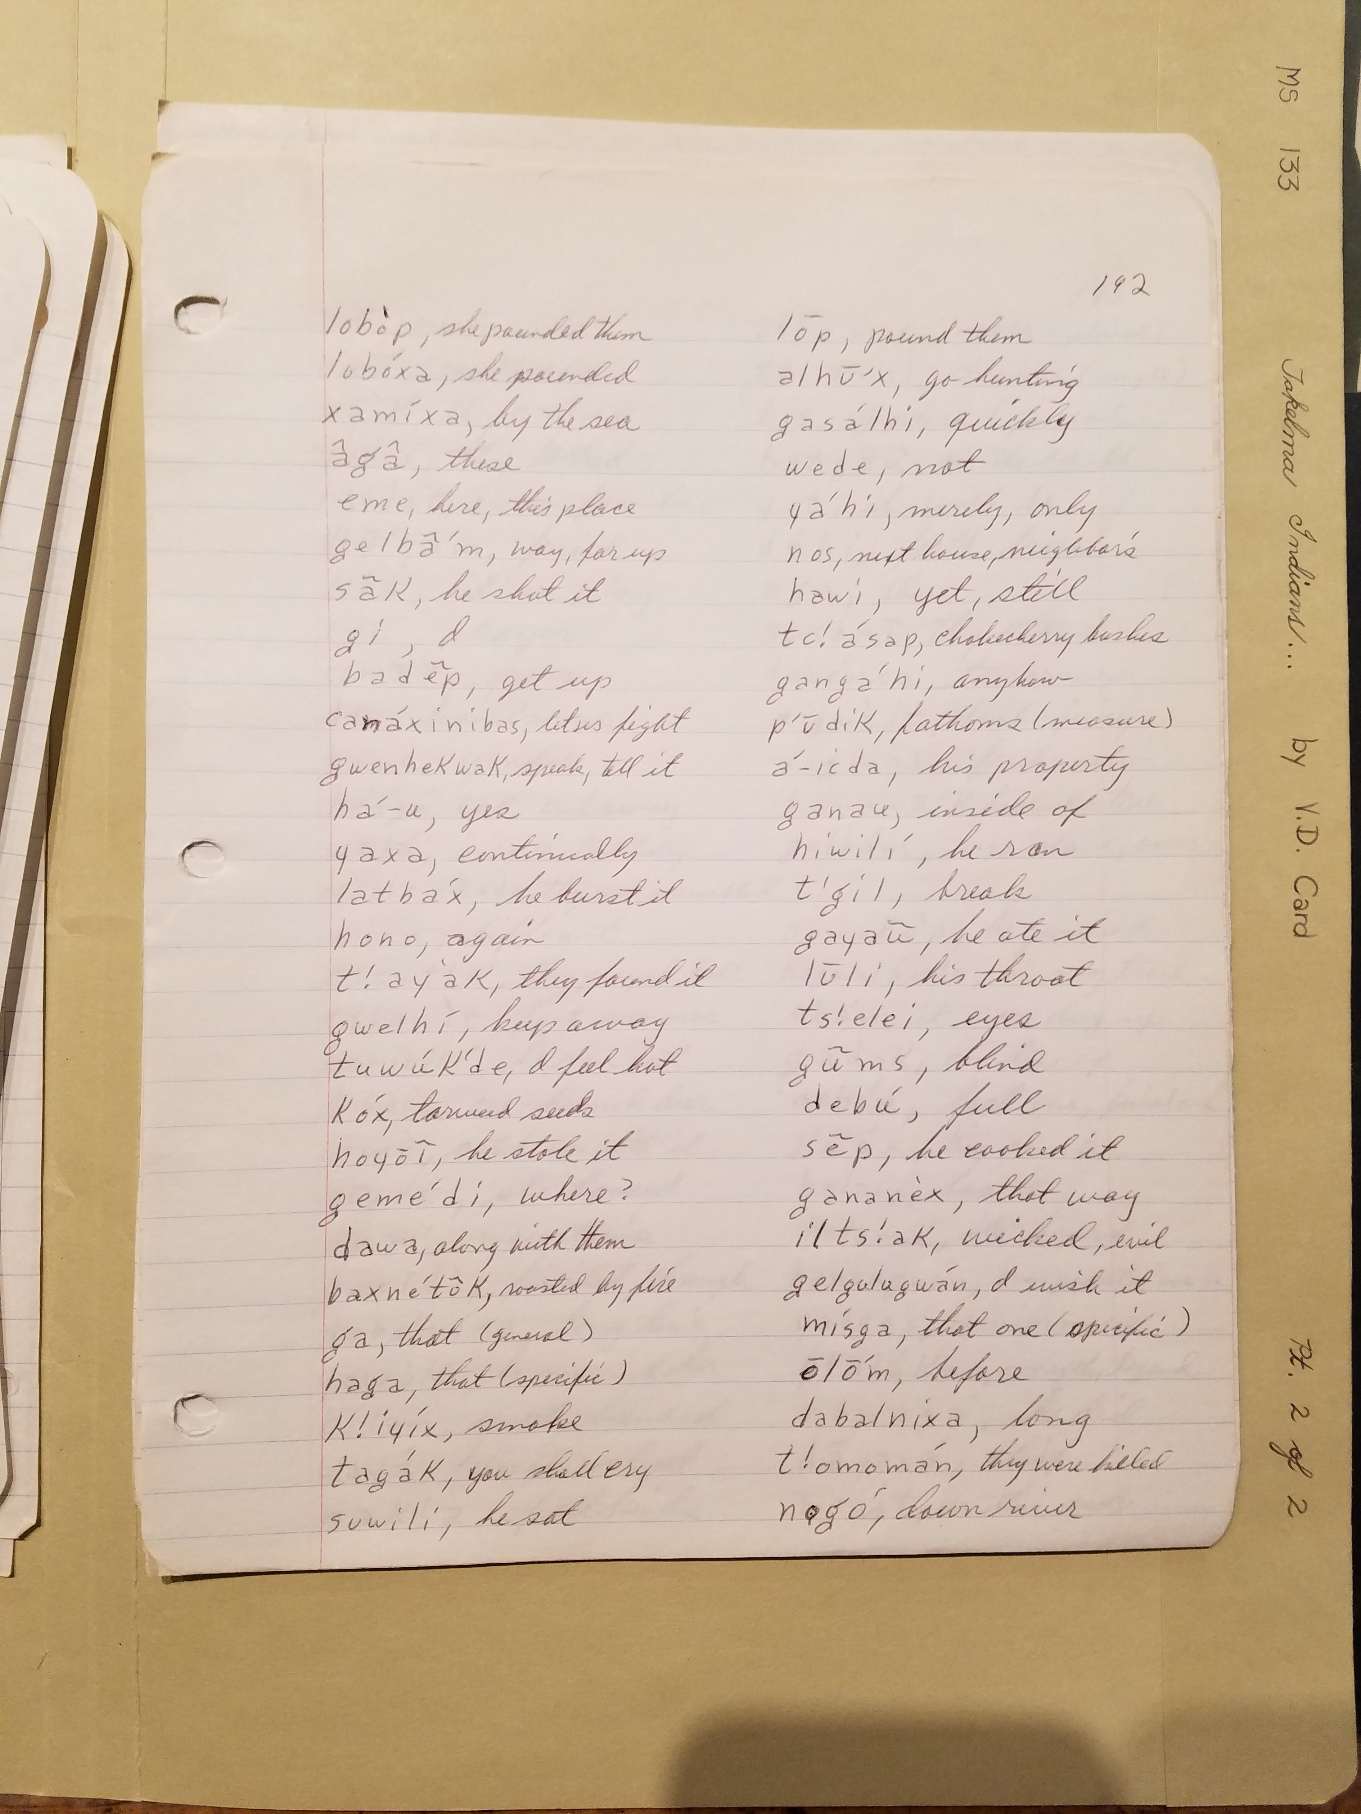 192
lobòp, she pounded them
lobóxa, she pounded
xamíxa, by the sea
âgâ, these
eme, here, this place
gelbã´m, way, far up
sãk, he shot it
gí, I
badẽp, get up
canáxinibas, lets us fight
gwenhekwak, speak, tell it
há-u, yes
yaxa, continually
latbáx, he burst it
hono, again
t!ayák, they found it
gwelhí, keep away
tuwúk'de, I feel hot
kóx, tarweed seeds
hoyõĩ, he stole it
gemé'di, where?
dawa, along with them
baxnétôk, roasted by fire
ga, that (general)
haga, that (specific)
k!iyíx, smoke
tagák, you shall cry
suwilí, he sat
lōp, pound them
alhū'x, go hunting
gasálhi, quickly
wede, not
yá'hi, merely, only
nos, next house, neighbors
hawi, yet, still
tc!ásap, chokecherry bushes
gangá'hi, anyhow
p'ūdik, fathoms (measure)
á-icda, his property
ganau, inside of
hiwilí, he ran
t'gíl, break
gayaũ, he ate it
lūlí, his throat
ts!elei, eyes
gũms, blind
debú, full
sẽp, he cooked it
gananèx, that way
ílts!ak, wicked, evil
gelgulugwán, I wish it
mísga, that one (specific)
ōlṓm, before
dabalnixa, long
t!omomán, they were killed
nogó, down river
MS 133 Takelma Indians... by V.D. Card Pt. 2 of 2